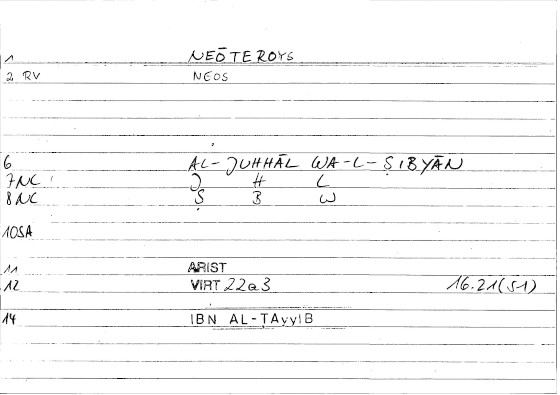 1 NEŌTEROYS
2 RV NEOS
6 AL-JUHHĀL WA-L-ṢIBYĀN
7NC J H L
8NC Ṣ B W
10SA
11 ARIST
12 VIRT 22a3 16.21(S1)
14 IBN AL-ṬAyyIB